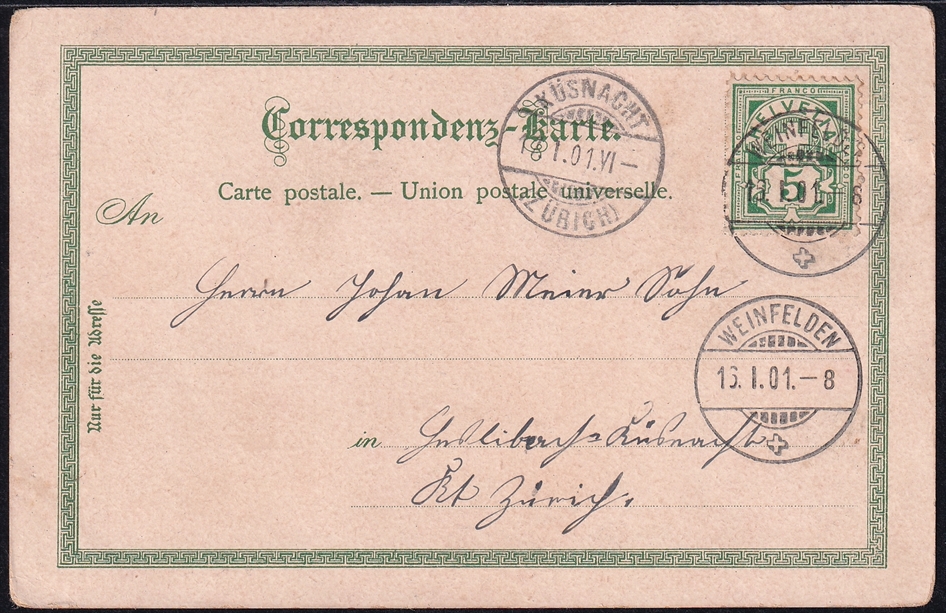 Correspondenz-Karte.
Carte postale. — Union postale universelle.
An
Nur für die Adresse
FRANCO
HELVETIA
5
KÜSNACHT
I.01.VI–
(ZÜRICH)
WEINFELDEN
I.01.–8
WEINFELDEN
I.01.–8
Herrn Johan Meier Sohn
in Heslibach=Küsnacht
Kt Zürich.